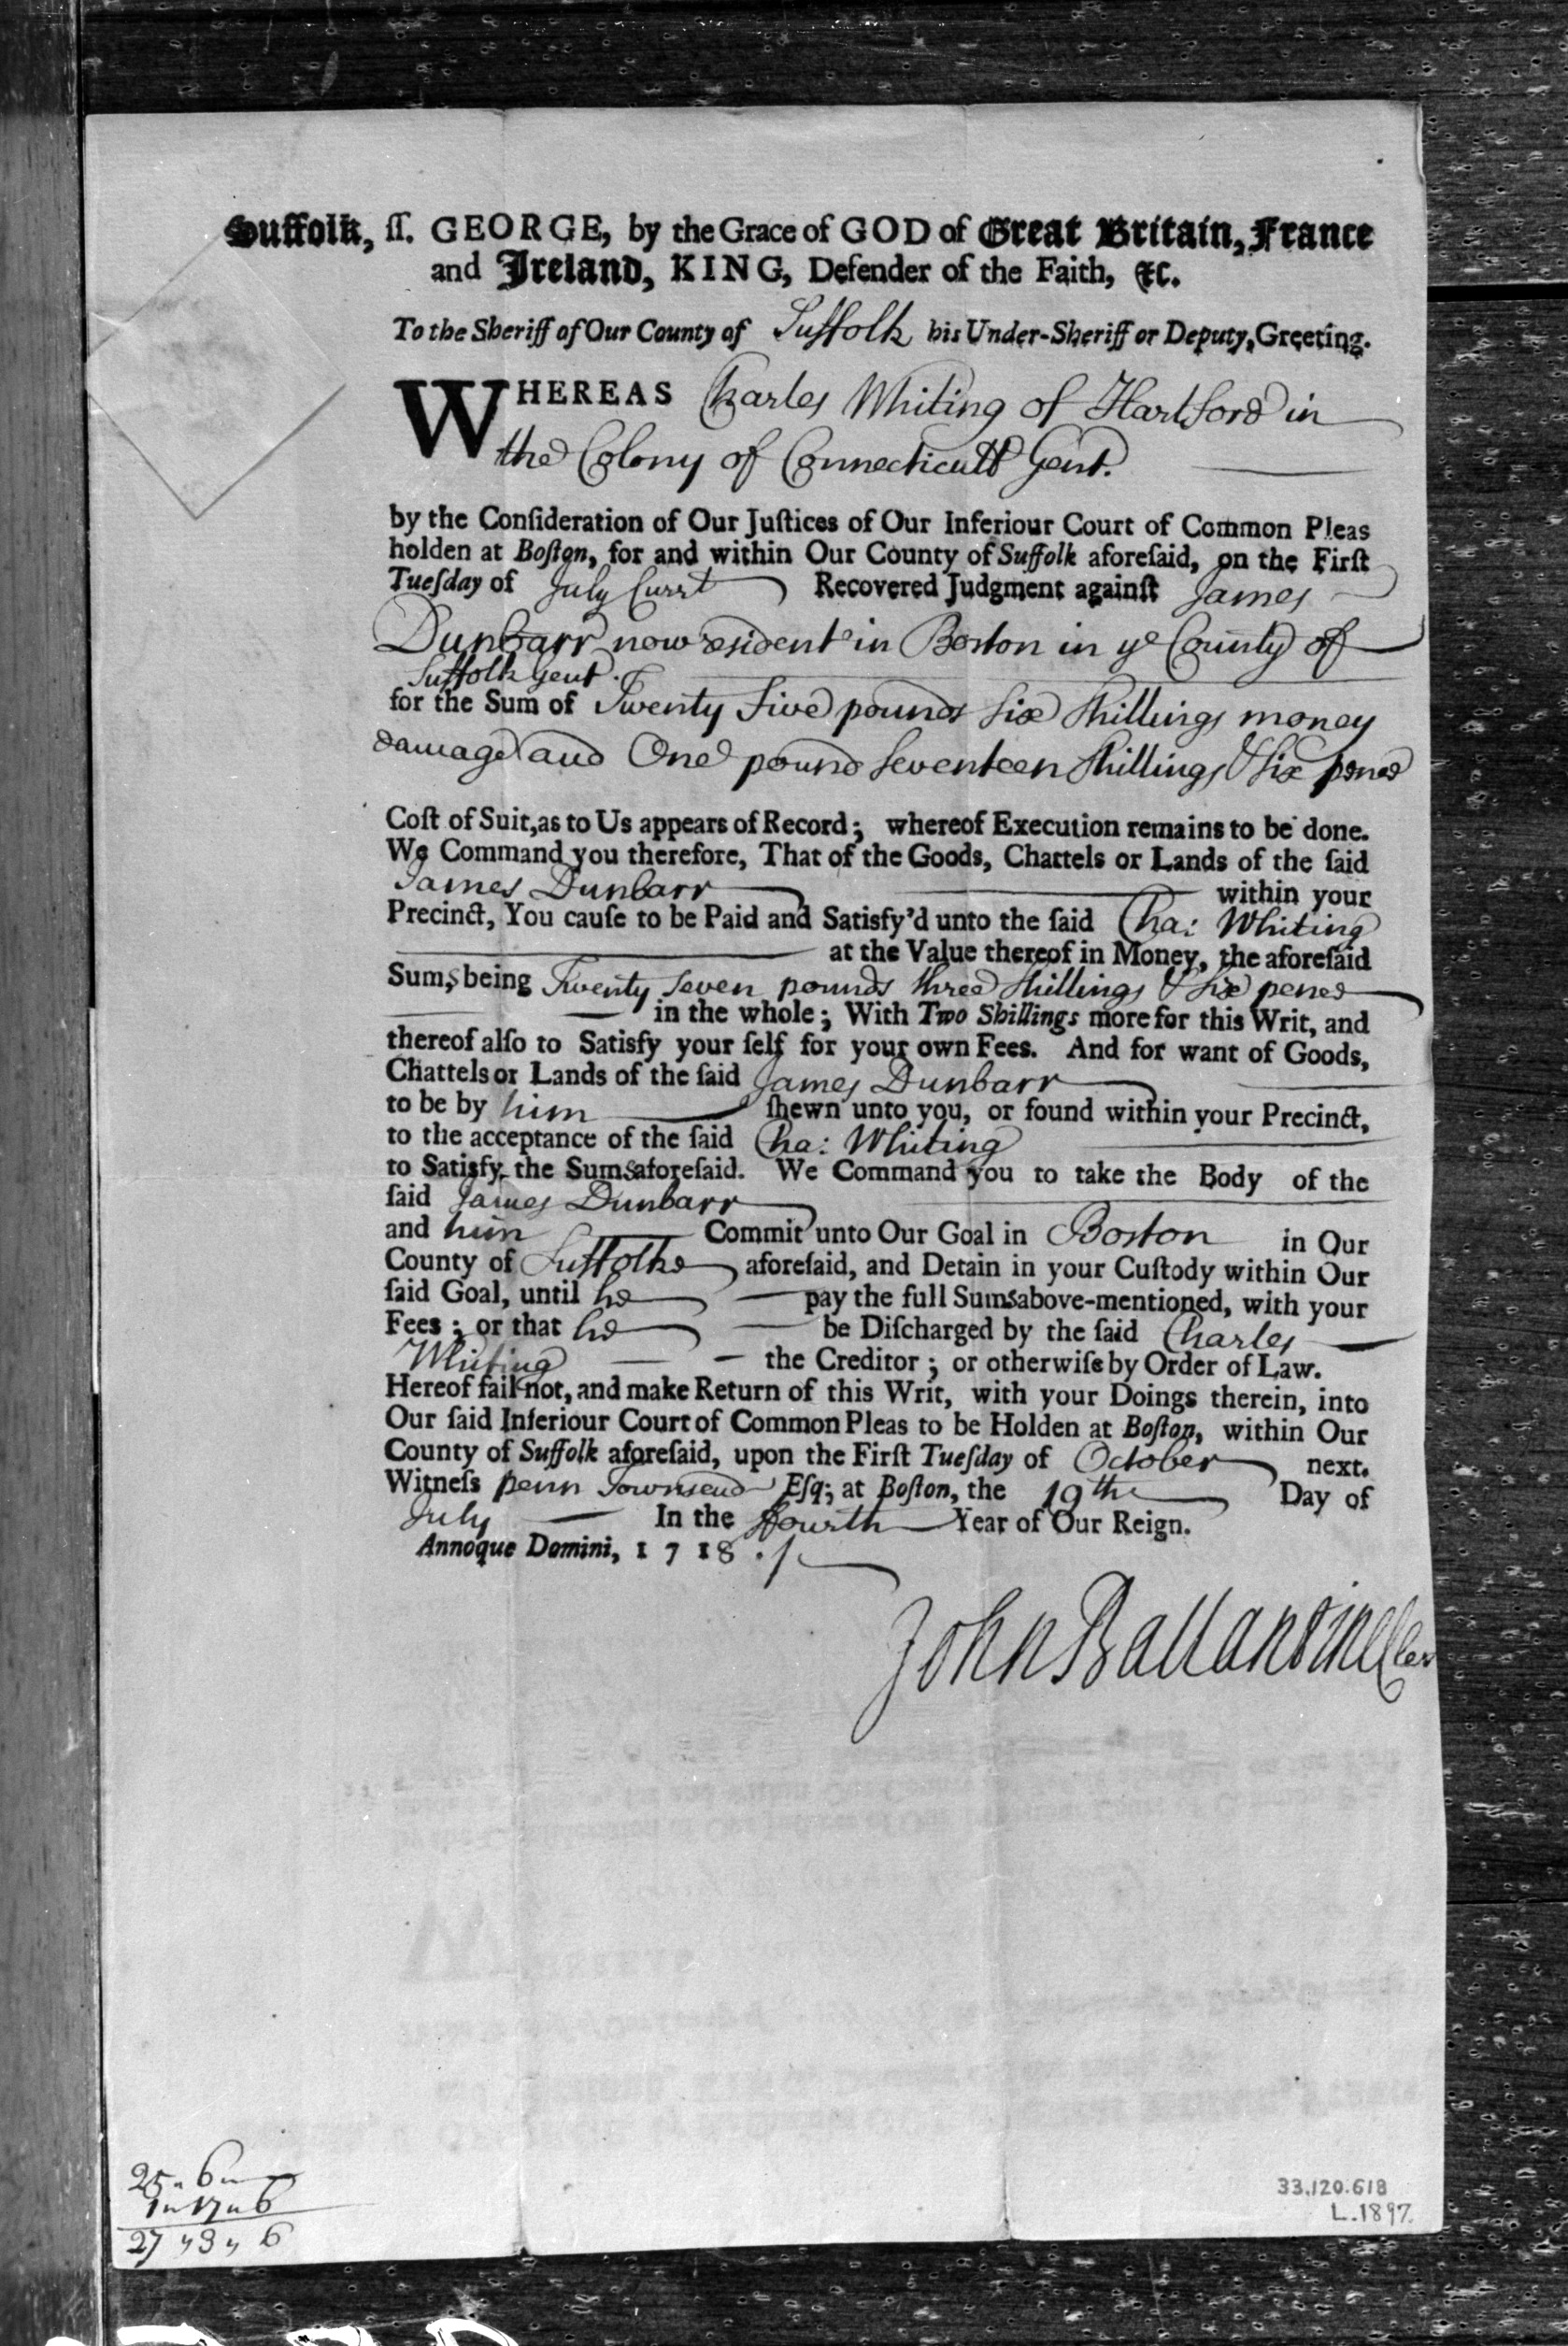 Suffolk, ſſ. GEORGE, by the Grace of GOD of Great Britain, France
and Ireland, KING, Defender of the Faith, &c.
To the Sheriff of Our County of Suffolk his Under-Sheriff or Deputy, Greeting.
WHEREAS Charles Whiting of Hartford in
the Colony of Connecticutt Gent.
by the Conſideration of Our Juſtices of Our Inferiour Court of Common Pleas
holden at Boſton, for and within Our County of Suffolk aforeſaid, on the Firſt
Tueſday of July Currt Recovered Judgment againſt James
Dunbarr now resident in Boston in ye County of
Suffolk Gent.
for the Sum of Twenty five pounds six shillings money
damage and One pound seventeen shillings & six pence
Coſt of Suit, as to Us appears of Record; whereof Execution remains to be done.
We Command you therefore, That of the Goods, Chattels or Lands of the ſaid
James Dunbarr within your
Precinct, You cauſe to be Paid and Satisfy'd unto the ſaid Cha: Whiting
at the Value thereof in Money, the aforeſaid
Sums being Twenty seven pounds three shillings & six pence
in the whole; With Two Shillings more for this Writ, and
thereof alſo to Satisfy your ſelf for your own Fees. And for want of Goods,
Chattels or Lands of the ſaid James Dunbarr
to be by him ſhewn unto you, or found within your Precinct,
to the acceptance of the ſaid Cha: Whiting
to Satisfy the Sums aforeſaid. We Command you to take the Body of the
ſaid James Dunbarr
and him Commit unto Our Goal in Boston in Our
County of Suffolke aforeſaid, and Detain in your Cuſtody within Our
ſaid Goal, until he pay the full Sums above-mentioned, with your
Fees; or that he be Diſcharged by the ſaid Charles
Whiting the Creditor; or otherwiſe by Order of Law.
Hereof fail not, and make Return of this Writ, with your Doings therein, into
Our ſaid Inferiour Court of Common Pleas to be Holden at Boſton, within Our
County of Suffolk aforeſaid, upon the Firſt Tueſday of October next.
Witneſs Penn Townsend Eſq; at Boſton, the 19th Day of
July In the fourth Year of Our Reign.
Annoque Domini, 1718.
John Ballantine Cler
25 " 6 "
1 " 17 " 6
27 " 3 " 6
33.120.618
L.1897.